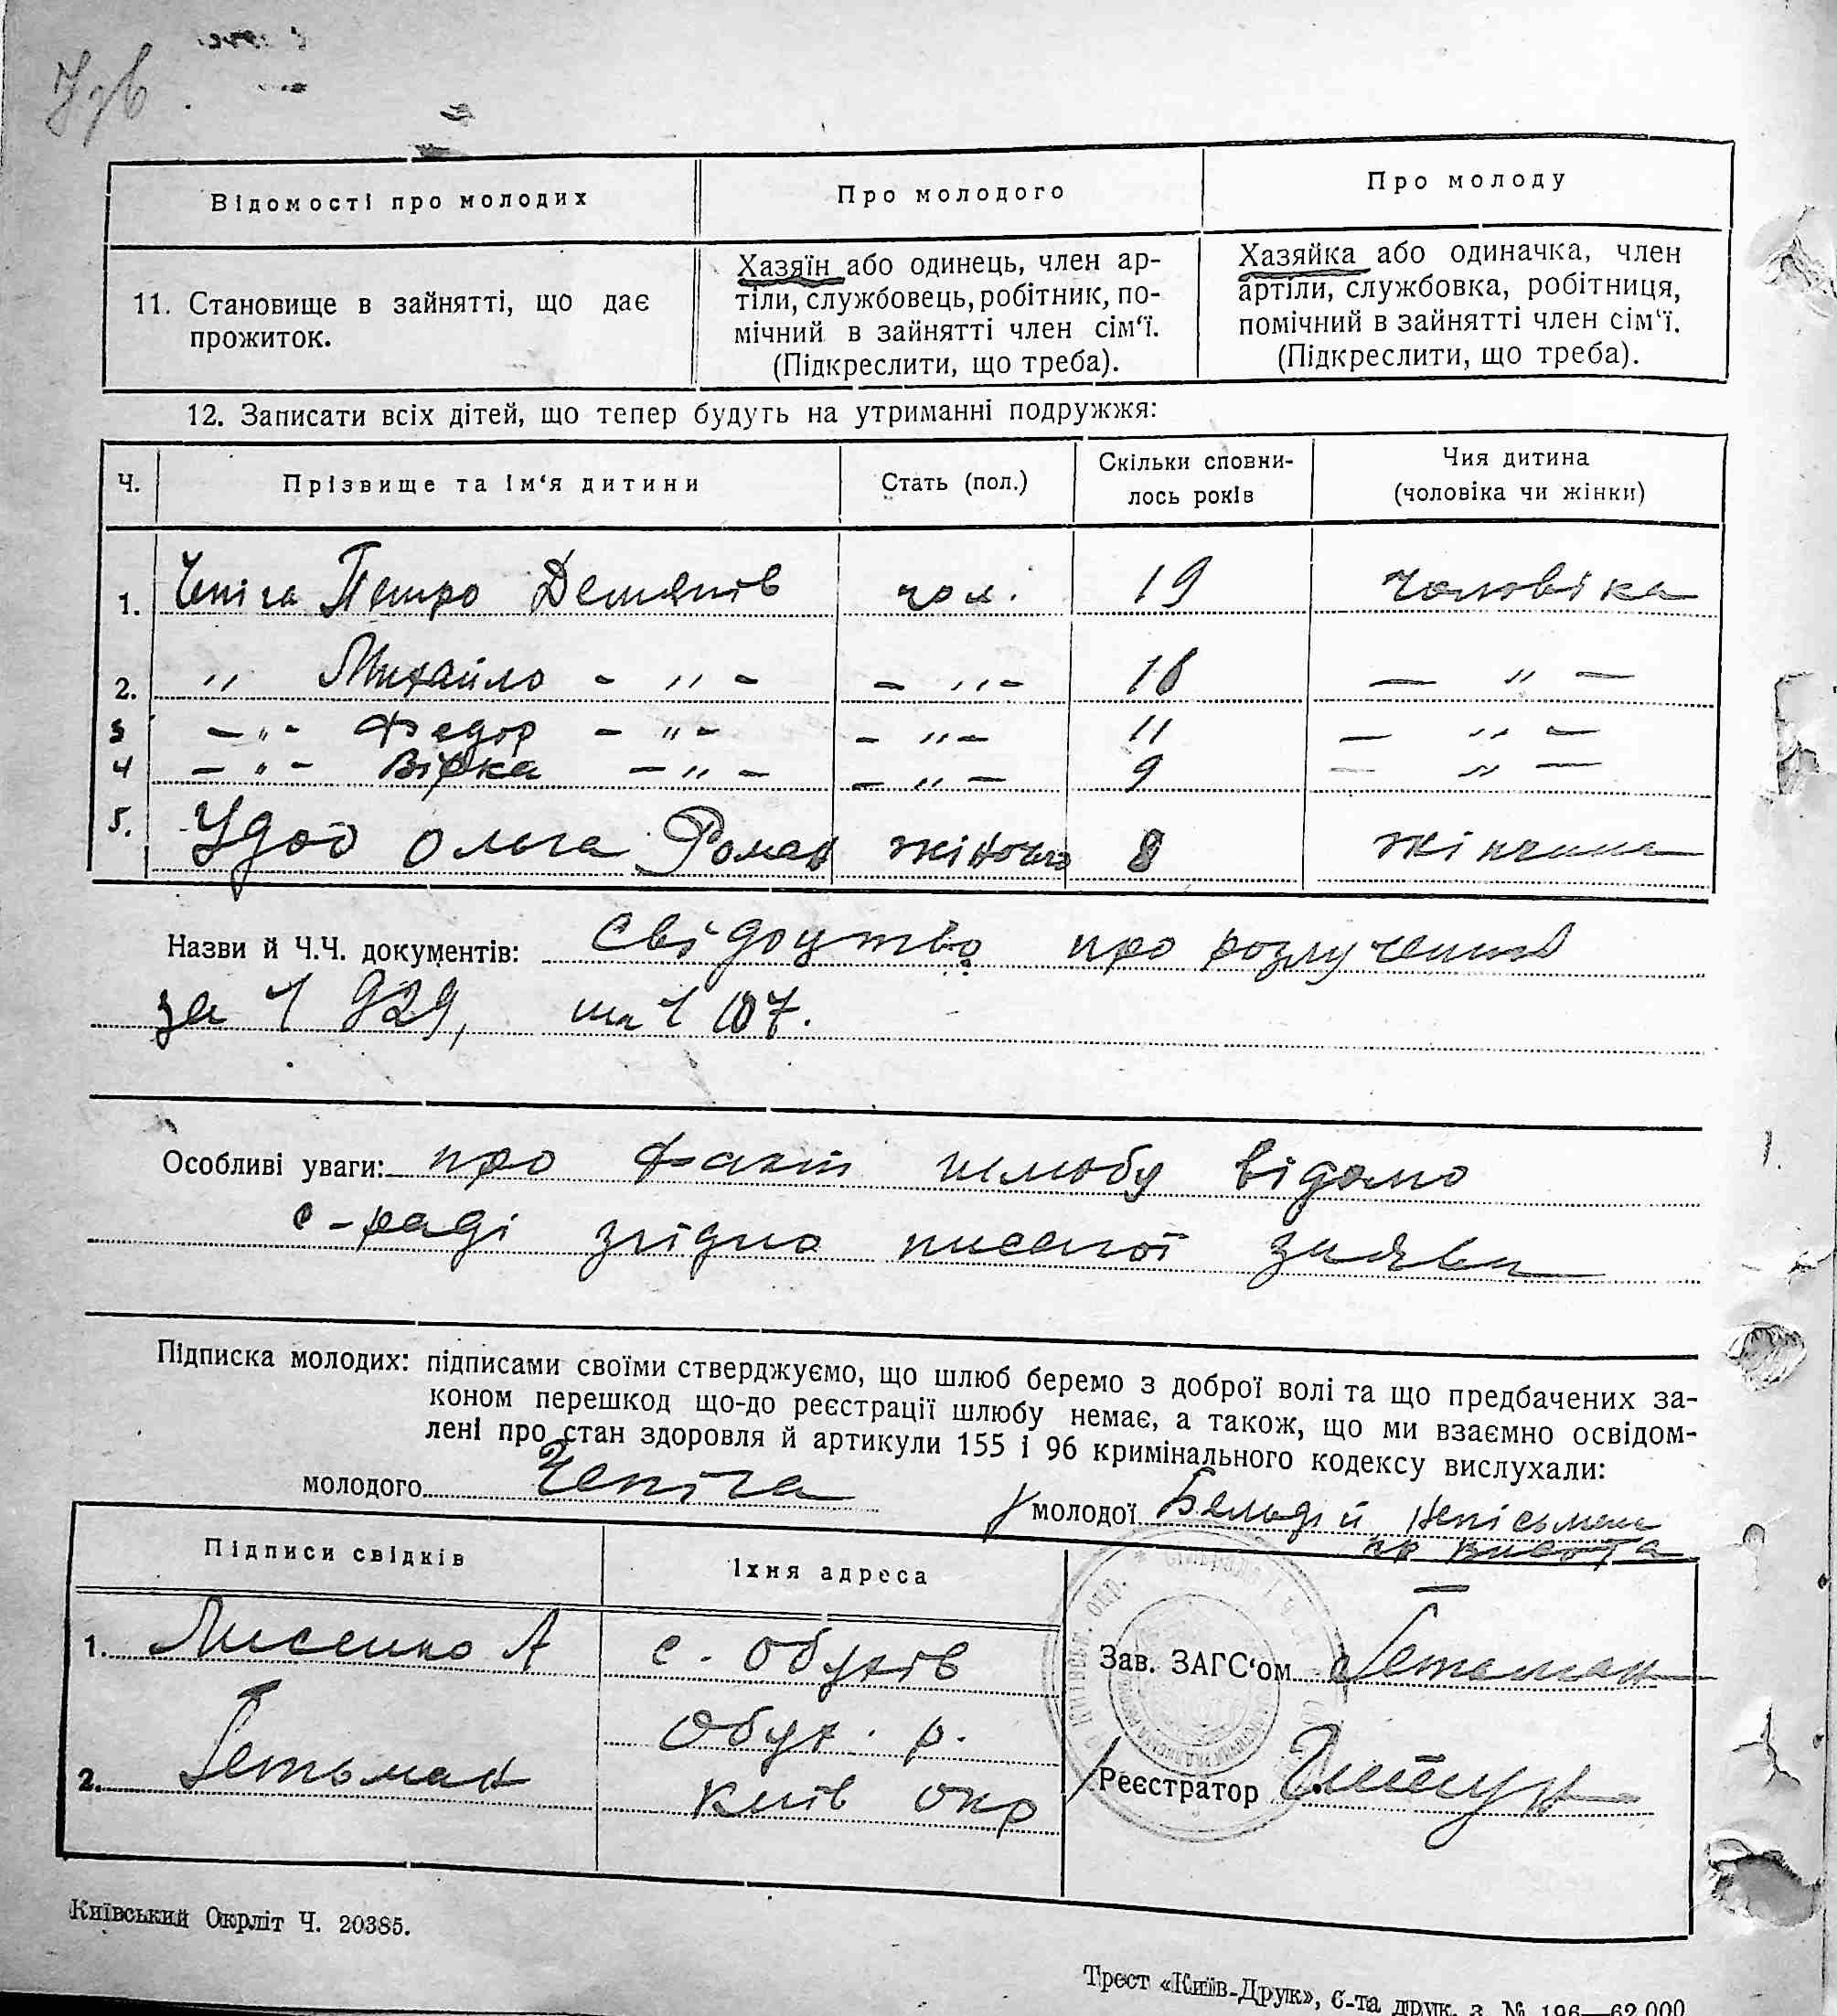 Відомості про молодих
Про молодого
Про молоду
11. Становище в зайнятті, що дає
прожиток.
Хазяїн або одинець, член ар-
тіли, службовець, робітник, по-
мічний в зайнятті член сім‘ї.
(Підкреслити, що треба).
Хазяйка або одиначка, член
артіли, службовка, робітниця,
помічний в зайнятті член сім‘ї.
(Підкреслити, що треба).
12. Записати всіх дітей, що тепер будуть на утриманні подружжя:
Ч.
Прізвище та ім‘я дитини
Стать (пол.)
Скільки сповни-
лось років
Чия дитина
(чоловіка чи жінки)
1. Чепіга Петро Демянів чол. 19 чоловіка
2. " Михайло - " - - " - 16 - " -
3 - " - Федор - " - - " - 11 - " -
4 - " - Вірка - " - - " - 9 - " -
5. Удод Ольга Роман 8
Назви й Ч.Ч. документів: Свідоцтво про розлучення
за 1929, 107.
Особливі уваги: про факт шлюбу відомо
с-раді згідно заяви
Підписка молодих: підписами своїми стверджуємо, що шлюб беремо з доброї волі та що предбачених за-
коном перешкод що-до реєстрації шлюбу немає, а також, що ми взаємно освідом-
лені про стан здоровля й артикули 155 і 96 кримінального кодексу вислухали:
молодого Чепіга
молодої
Підписи свідків
Їхня адреса
1. Лисенко А с. Обухів
Обух. р.
2. Гетьман Київ окр
Зав. ЗАГС‘ом Гетьман
Реєстратор
Київський Окрліт Ч. 20385.
Трест «Київ-Друк», 6-та друк. з. № 196—62.000